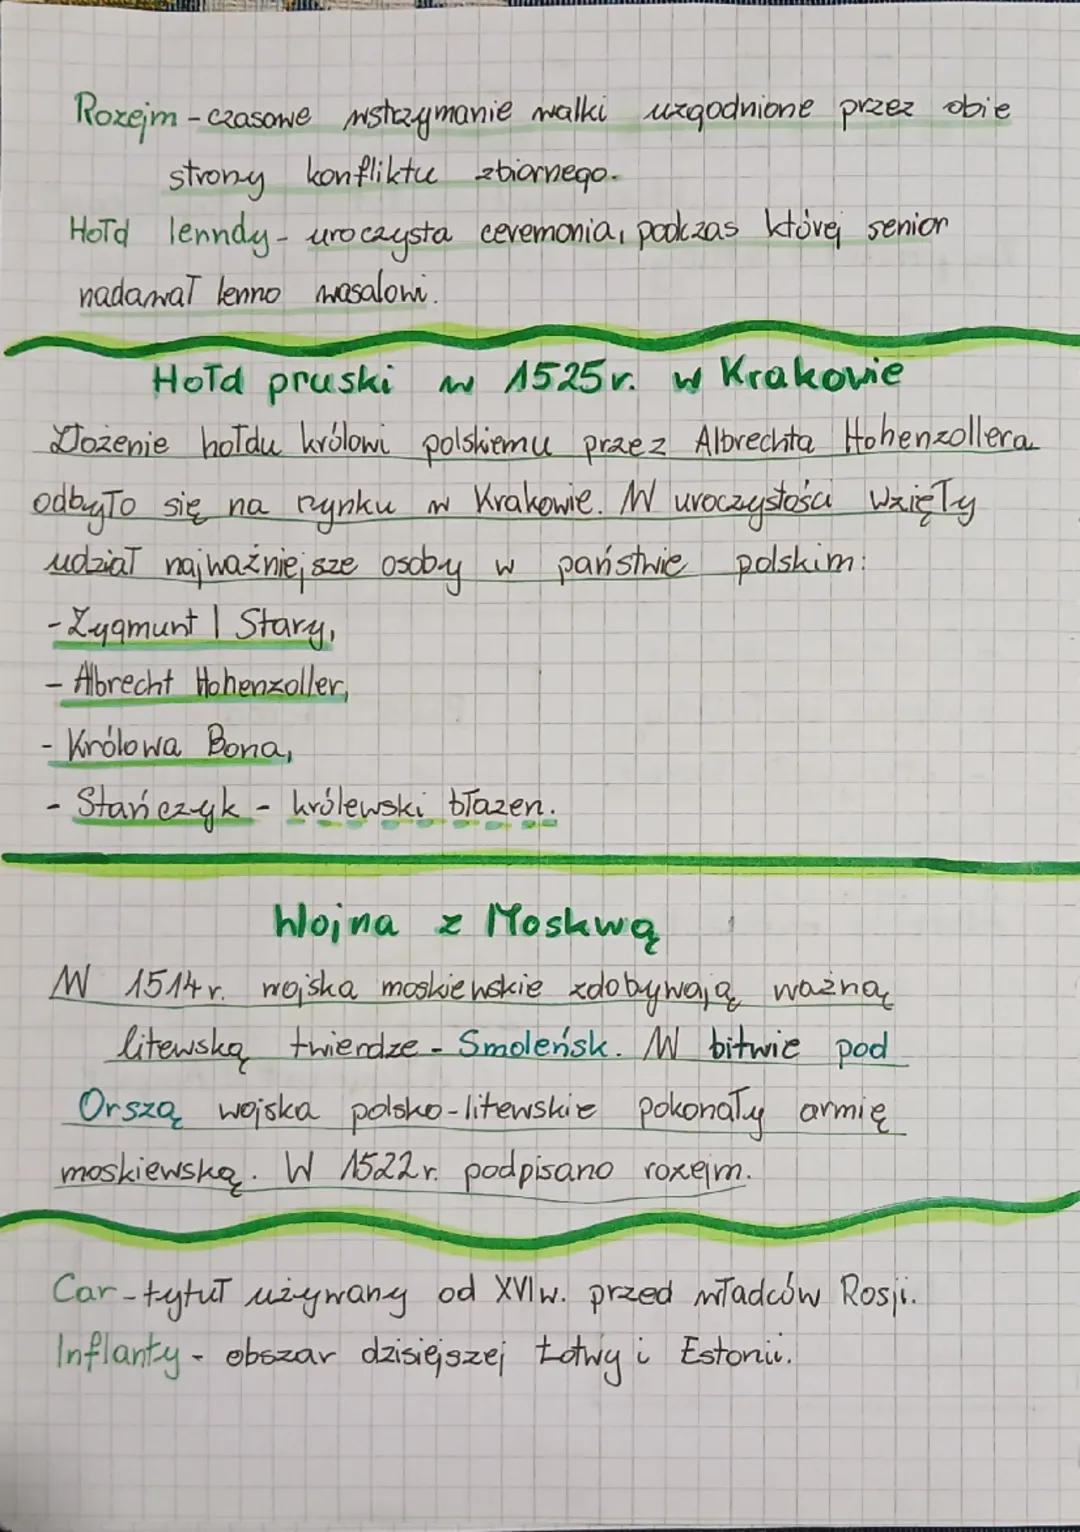 Rozejm - czasowe wstrzymanie walki uzgodnione przez obie
strony konfliktu zbiornego.
Hołd lenndy - uroczysta ceremonia, podczas której senior
nadawał lenno wasalowi.
Hołd pruski w 1525r. w Krakowie
Złożenie hołdu królowi polskiemu przez Albrechta Hohenzollera
odbyło się na rynku w Krakowie. W uroczystości wzięły
udział najważniejsze osoby w państwie polskim:
- Zygmunt I Stary,
- Albrecht Hohenzoller,
- Królowa Bona,
- Stańczyk - królewski błazen.
Wojna z Moskwą
W 1514r. wojska moskiewskie zdobywają ważną
litewską twierdze - Smoleńsk. W bitwie pod
Orszą wojska polsko-litewskie pokonały armię
moskiewską. W 1522r. podpisano rozejm.
Car - tytuł używany od XVIw. przed władców Rosji.
Inflanty - obszar dzisiejszej Łotwy i Estonii.